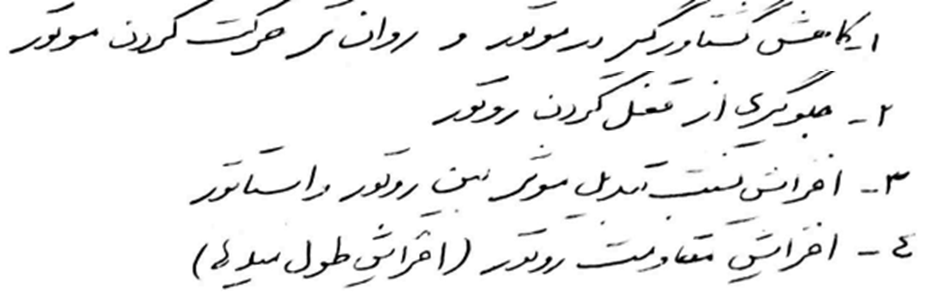 ۱- کاهش گشتاور گیر در موتور و روان تر حرکت کردن موتور
۲- جلوگیری از قفل کردن روتور
۳- افزایش نسبت تبدیل موثر بین روتور و استاتور
٤- افزایش مقاومت روتور (افزایش طول میله ها)